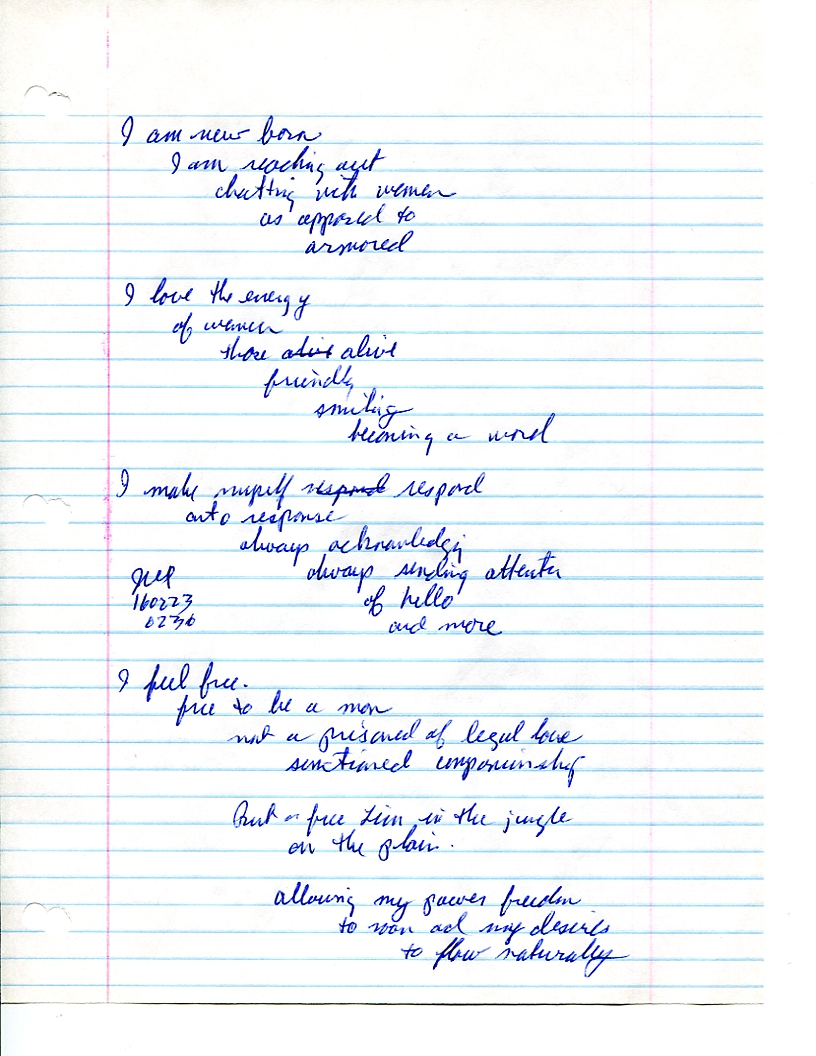 I am new born
I am reaching out
chatting with women
as opposed to
armored
I love the energy
of women
those alive alive
friendly
smiling
becoming a word
I make myself respond respond
auto response
always acknowledgig
always sending attentn
of hello
and more
160223
0230
I feel free.
free to be a man
not a prisoned of legal love
sanctioned companionship
But a free Lion in the jungle
on the plain.
allowing my power freedom
to and my desires
to flow naturally